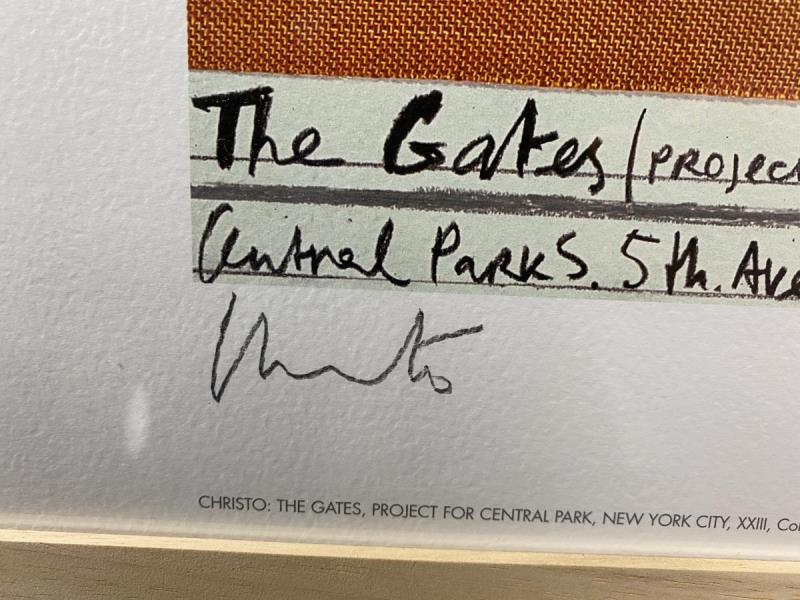 The Gates / PROJEC
Central Park S. 5th. Ave
Christo
CHRISTO: THE GATES, PROJECT FOR CENTRAL PARK, NEW YORK CITY, XXIII, Col